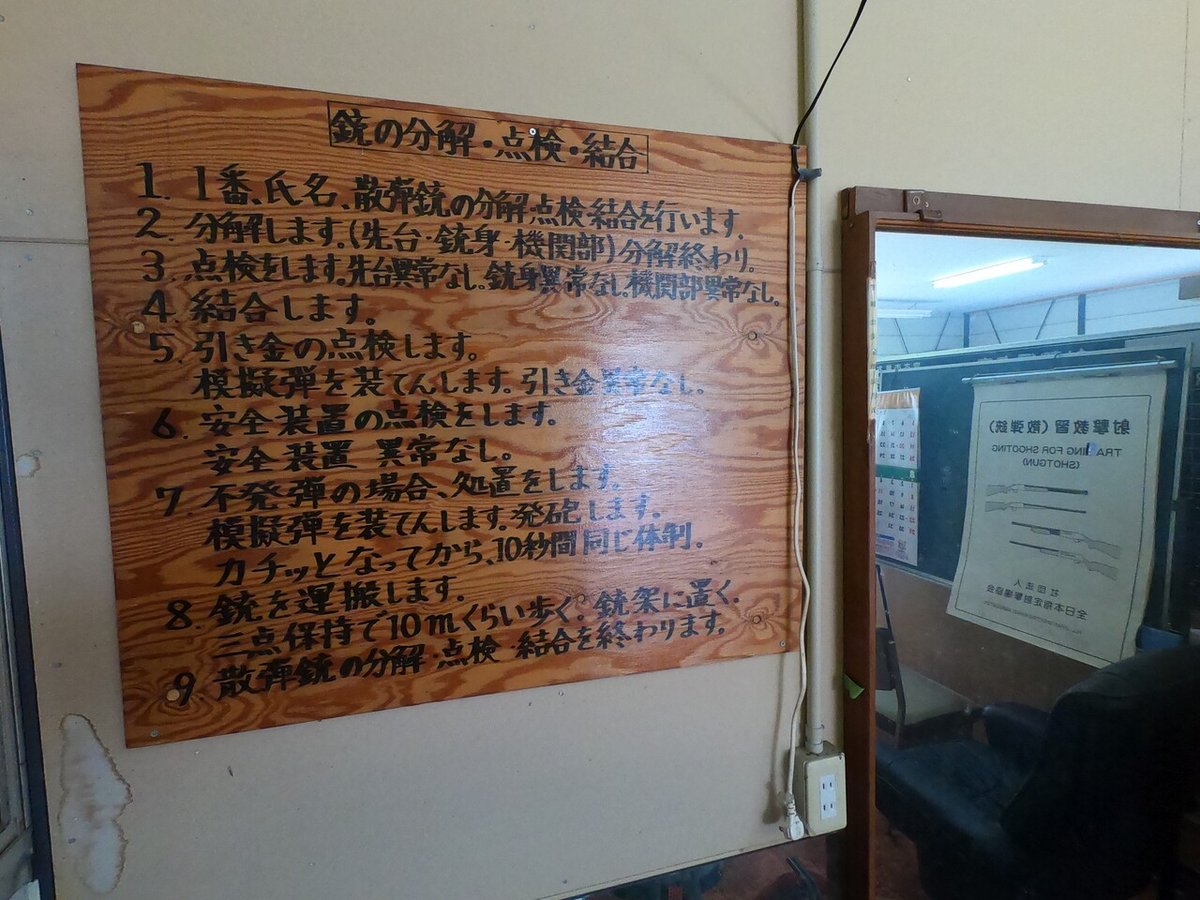 銃の分解・点検・結合
1. 1番、氏名、散弾銃の分解・点検・結合を行います。
2. 分解します。(先台・銃身・機関部)分解終わり。
3. 点検をします。先台異常なし。銃身異常なし。機関部異常なし。
4. 結合します。
5. 引き金の点検します。
模擬弾を装てんします。引き金異常なし。
6. 安全装置の点検をします。
安全装置 異常なし。
7 不発弾の場合、処置をします。
模擬弾を装てんします。発砲します。
カチッとなってから、10秒間同じ体制。
8. 銃を運搬します。
三点保持で10mくらい歩く。銃架に置く.
9 散弾銃の分解・点検・結合を終わります。
射撃教習(散弾銃)
TRAINING FOR SHOOTING
(SHOTGUN)
社団法人